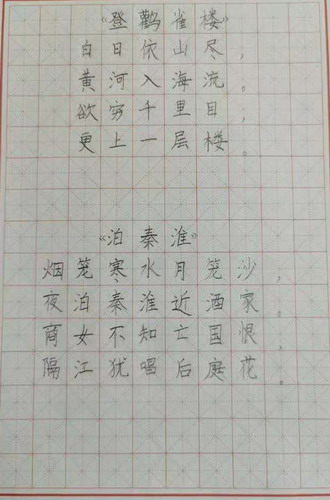 《登鹳雀楼》
白日依山尽，
黄河入海流。
欲穷千里目，
更上一层楼。
《泊秦淮》
烟笼寒水月笼沙，
夜泊秦淮近酒家。
商女不知亡国恨，
隔江犹唱后庭花。